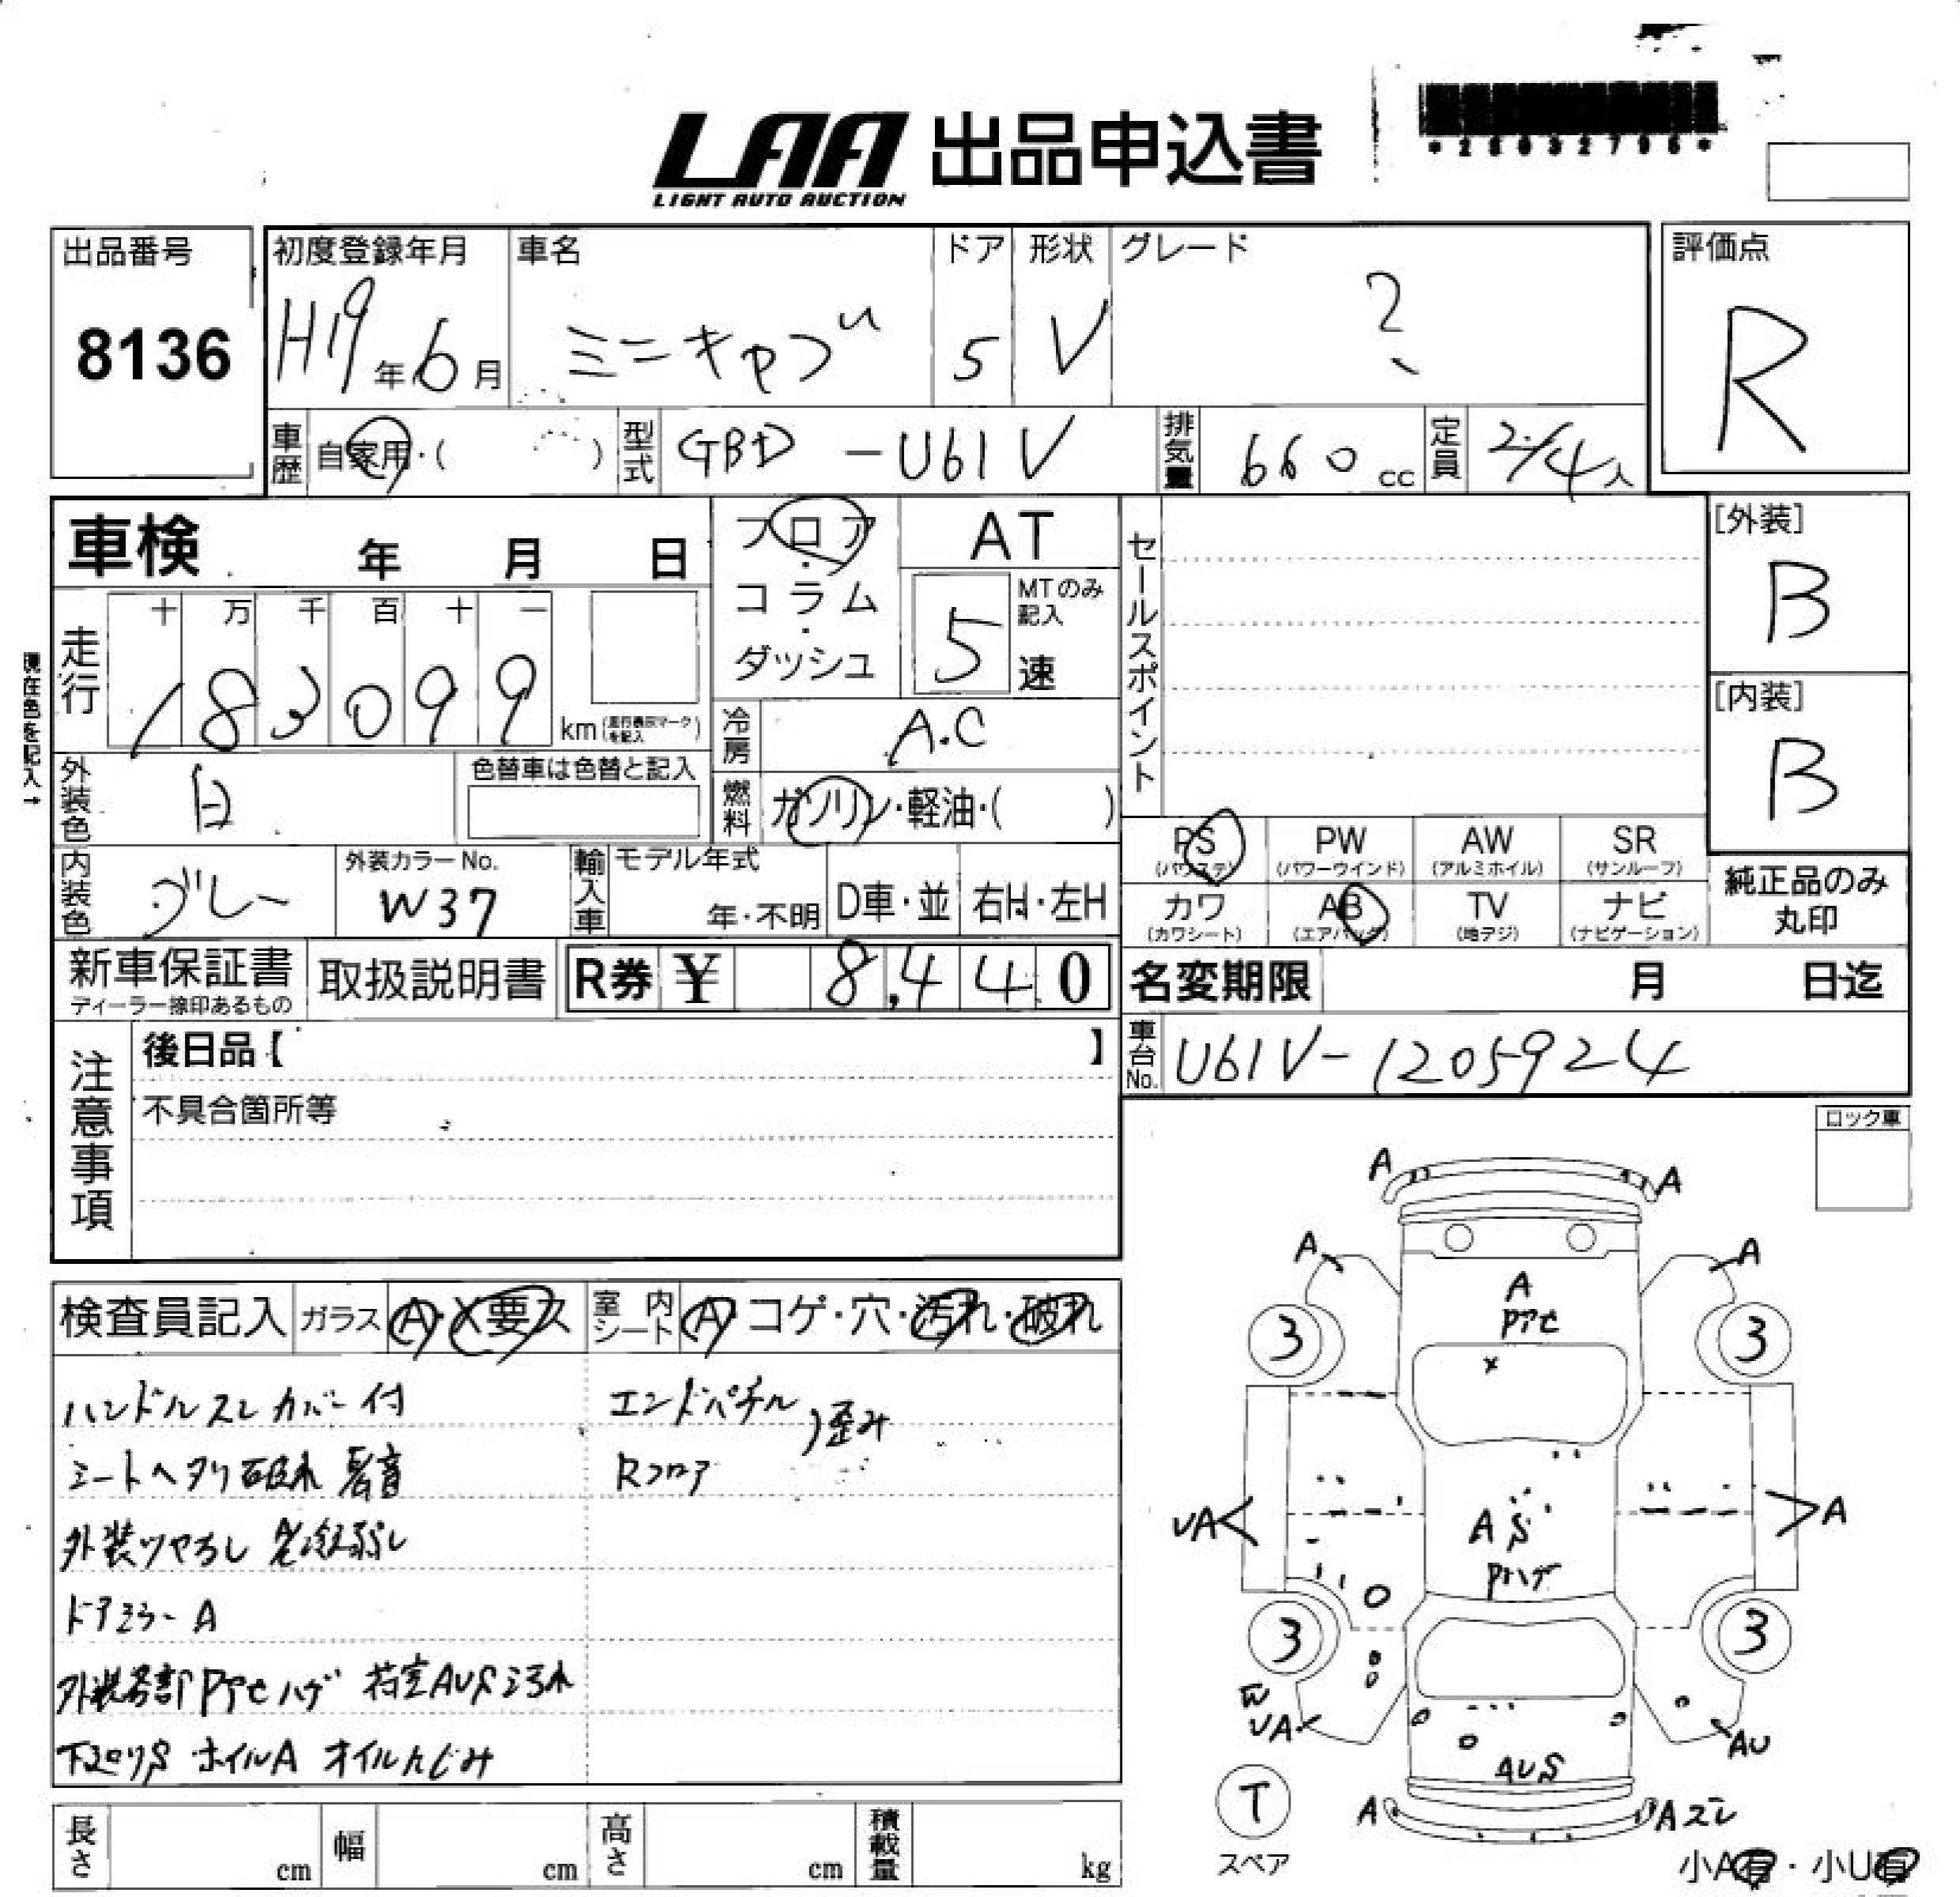 LAA
LIGHT AUTO AUCTION
出品申込書
出品番号
8136
初度登録年月
H19年6月
車名
ミニキャブ
ドア
5
形状
V
グレード
?
評価点
R
車歴
自家用・( )
型式
GBD -U61V
排気量
660cc
定員
2/4人
車検 年 月 日
フロア・コラム・ダッシュ
AT
MTのみ記入
5速
セールスポイント
[外装]
B
[内装]
B
現在色を記入→
走行
十万千百十一
183099
km(走行表示マークを記入)
冷房
A.C
燃料
ガソリン・軽油・( )
外装色
白
色替車は色替と記入
内装色
グレー
外装カラーNo.
W37
輸入車
モデル年式
年・不明
D車・並
右H・左H
PS
(パワステ)
PW
(パワーウインド)
AW
(アルミホイル)
SR
(サンルーフ)
カワ
(カワシート)
AB
(エアバッグ)
TV
(地デジ)
ナビ
(ナビゲーション)
純正品のみ
丸印
新車保証書
ディーラー捺印あるもの
取扱説明書
R券 ¥ 8,440
名変期限 月 日迄
車台No.
U61V-1205924
注意事項
後日品【 】
不具合箇所等
ロック車
検査員記入
ガラス
A・X要ス
室内シート
A・コゲ・穴・汚れ・破れ
ハンドルスレ カバー付
シートヘタリ破れ 異音
外装ツヤなし
ドアミラーA
外装各部Pアセハゲ 荷室AUS汚れ
下廻りS ホイルA オイルにじみ
エンドパネル
Rフロア
歪み
A
A
A
A
A
Pアセ
3
3
UA
A
AS
Pハゲ
3
3
UA
AU
AUS
T
スペア
A
Aズレ
小A有・小U有
長さ cm
幅 cm
高さ cm
積載量 kg